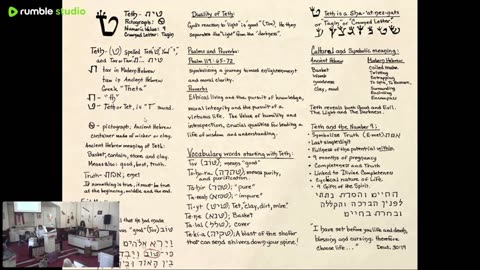 rumble studio
Teth = טית
Pictograph:
Numeric Value: 9
Crowned Letter: Tagin
Teth: (ט) spelled Teth, Yud, "י",
ט tav in Modern Hebrew
Greek "Theta"
= "th"
Teth or Tet, is "T" sound.
= pictograph: Ancient Hebrew
container made of wicker or clay.
Ancient Hebrew meaning of Teth:
Basket, contain, store and clay.
Means also: good, best, truth.
Truth: אמת, emet
If something is true, it must be true
at the beginning, middle and the end.
Duality of Teth:
God's reaction to "light" is "good" (Tov), He then
separates the "light" from the "darkness".
Psalms and Proverbs:
Psalm 119:65-72
Symbolizing a journey toward enlightenment
and moral clarity.
Proverbs
Ethical living and the pursuit of knowledge,
moral integrity and the pursuit of a
virtuous life. The Value of humility and
introspection, crucial qualities for leading a
life of wisdom and understanding.
Vocabulary words starting with Teth:
Tov (טוב); means "good"
means purity,
and purification.
"pure"
"impure"
Tet, clay, dirt, mire"
Basket
Cover
A blast of the shofar
that can send shivers down your spine!
Teth is a Sha'at-nez-gets
or Tagin or "Crowned Letter".
Cultural and Symbolic meaning:
Ancient Hebrew
Basket
Womb
goodness
clay, mud
Modern Hebrew
Coiled Snake
Twisting
Entrapping
Surrounding
Enclosing
Encompass
Teth reveals both Good and Evil.
The Light and The Darkness.
Teth and the Number 9:
• Symbolize Truth (Emet אמת)
• Last single digit
• Fullness of the potential within.
• 9 months of pregnancy
• Completeness and Truth
• Linked to Divine Completeness
• Cyclical nature of Life.
• 9 Gifts of the Spirit.
לפניך הברכה והקללה
ובחרת בחיים
"I have set before you life and death,
blessing and cursing: therefore
choose life..." Deut. 30:19